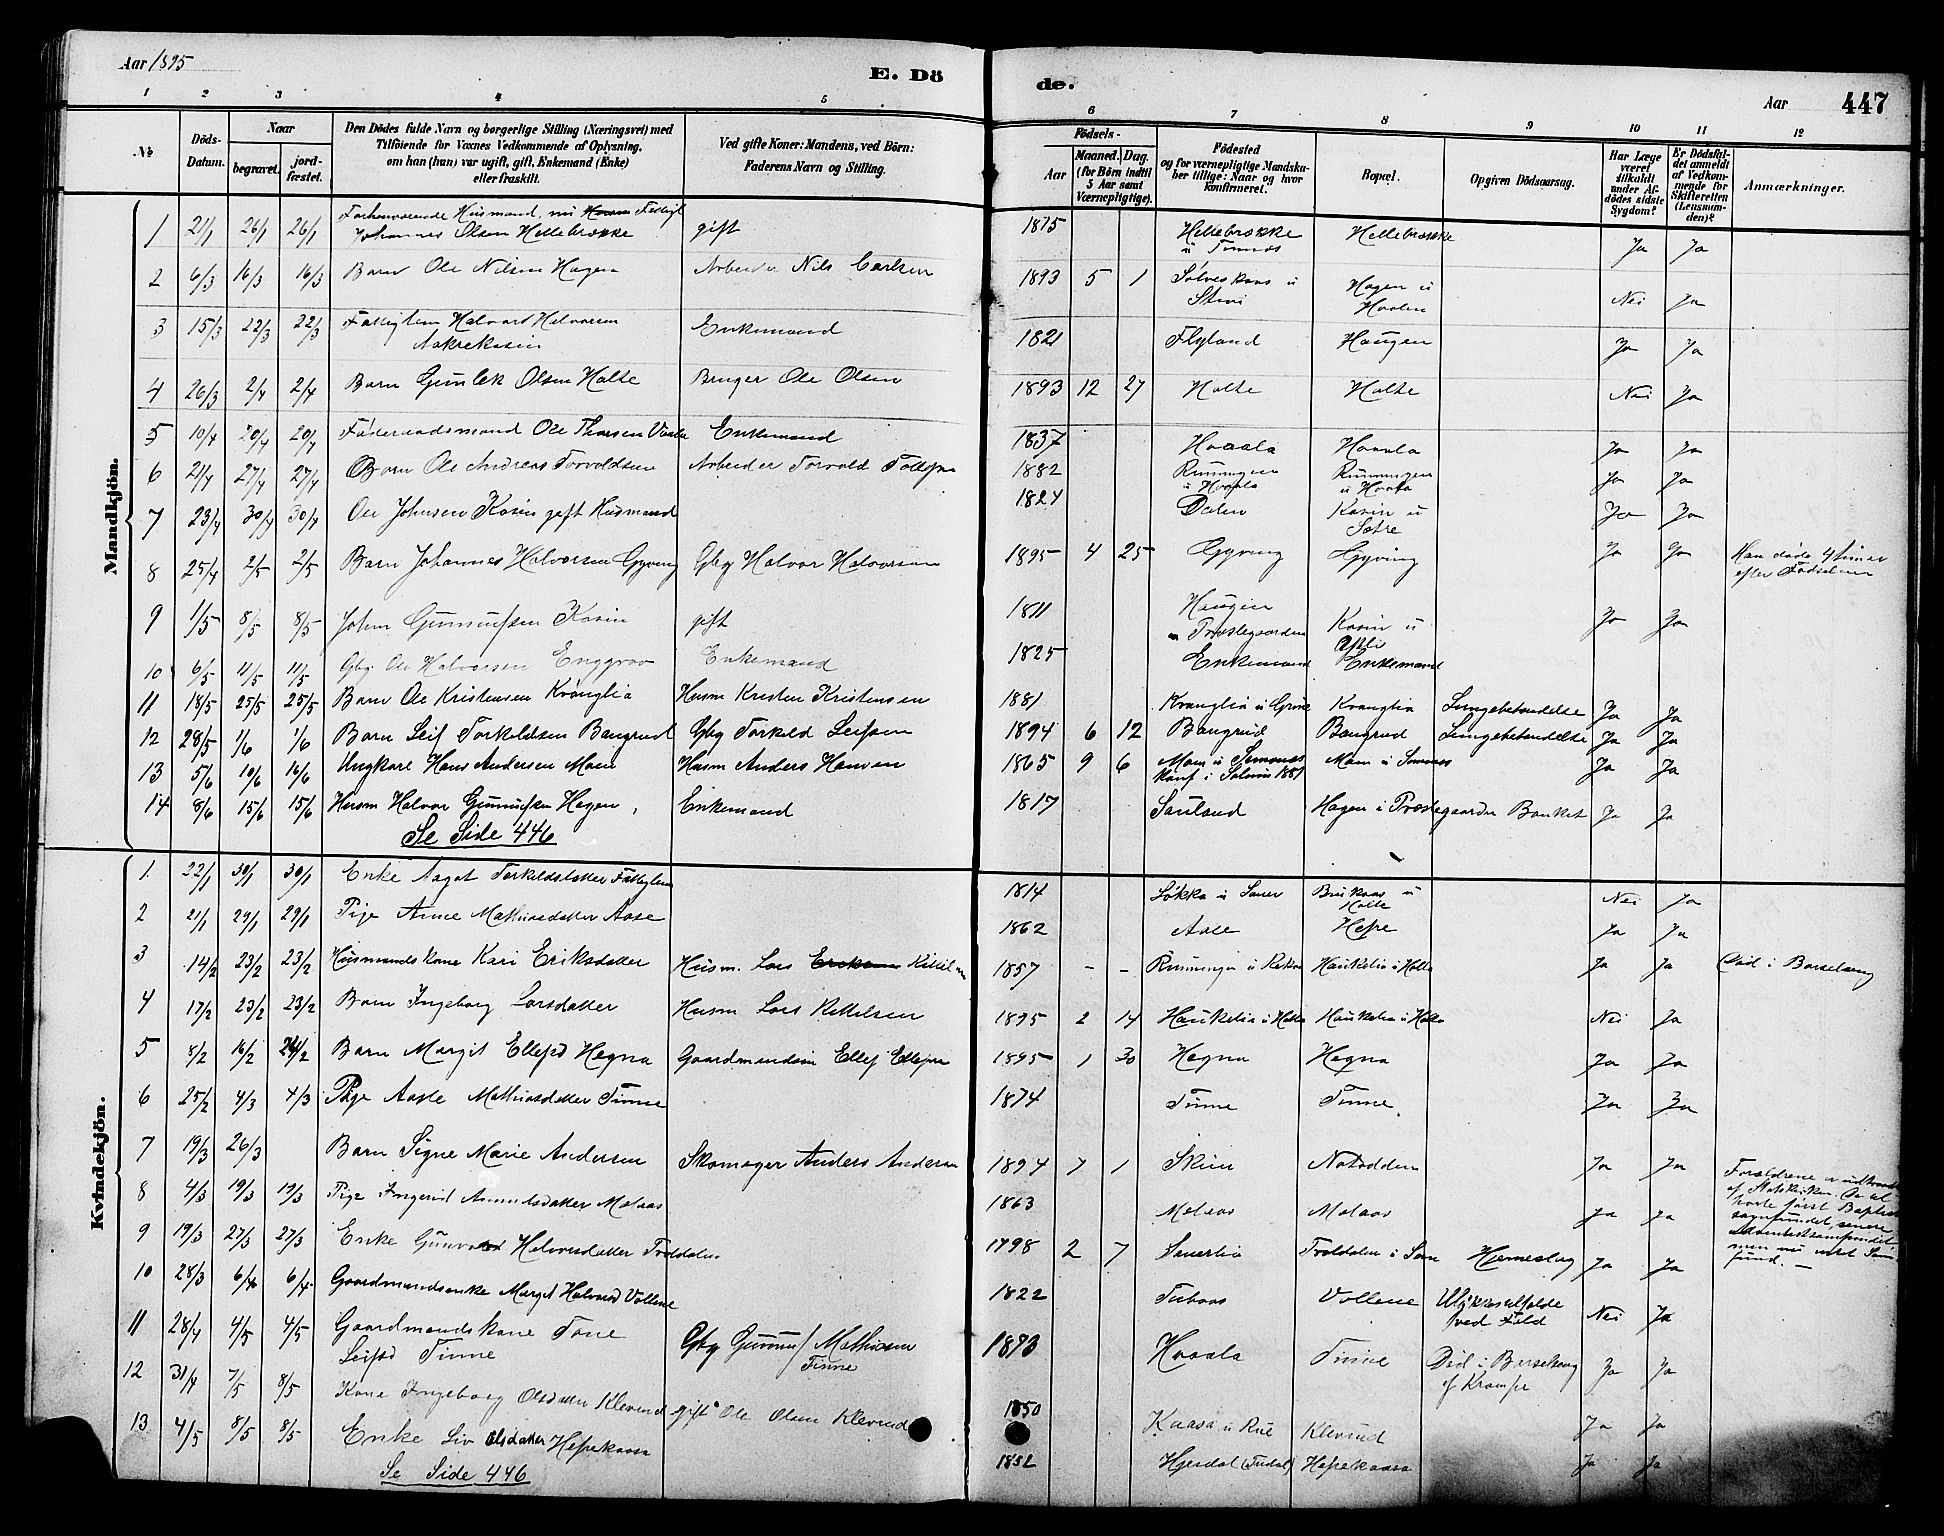 Aar 1895
E. Dö
de.
Aar
447
1 2 3 4 5 6 7 8 9 10 11 12
No
Döds-Datum.
Naar
begravet.
jord-fæstet.
Den Dödes fulde Navn og borgerlige Stilling (Næringsvei) med
Tilföiende for Voxnes Vedkommende af Oplysning,
om han (hun) var ugift, gift, Enkemand (Enke)
eller fraskilt.
Ved gifte Koner: Mandens, ved Börn:
Faderens Navn og Stilling.
Födsels-
Aar
Maaned. Dag.
(for Börn indtil
5 Aar samt
Værnepligtige).
Födested
og for værnepligtige Mandsku-
ber tillige: Naar og hvor
konfirmeret.
Bopæl.
Opgiven Dödsaarsag.
Har Læge
været
tilkaldt
under Af-
dödes sidste
Sygdom?
Er Dödsfal-
det anmeldt
af Vedkom-
mende for
Skifteretten
(Lensman-
den)?
Anmærkninger.
Mandkjön.
1 21/1 26/1 26/1 Forhenværende Husmand, nu Fattigl
Johannes Olsen Hellebrække gift 1815 Hellebrække
u Tinnes Hellebrække Ja Ja
2 6/3 16/3 16/3 Barn Ole Nilsen Hagen Arbeider Nils Carlsen 1893 5 1 Hagen u
Nei Ja
3 15/3 22/3 22/3 Fattiglem Halvor Halvorsen
Enkemand 1821 Flyland Haugen Ja Ja
4 26/3 2/4 2/4 Barn Gunlek Olsen Holte Bruger Ole Olsen 1893 12 27 Holte Holte Nei Ja
5 10/4 20/4 20/4 Föderaadsmand Ole Thorsen Enkemand 1837 Hvaala Hvaala Ja Ja
6 21/4 27/4 27/4 Barn Ole Andreas Torvoldsen Arbeider Torvold 1882 Rumningen
u Hvaala Rumningen
u Hvaala Ja Ja
7 23/4 30/4 30/4 Ole Johnsen Kasin gift Husmand 1824 Dalen Kasin u
Sætre Ja Ja
8 25/4 2/5 2/5 Barn Johannes Halvorsen Gyving Gbg Halvor Halvorsen 1895 4 25 Gyving Gyving Ja Ja Han döde 4 timer
efter Födselen
9 1/5 8/5 8/5 John Gunnufsen Kasin gift 1811 Haugen
Præstegaarden Kasin u
Ja Ja
10 6/5 11/5 11/5 Gbg Ole Halvorsen Enggrav Enkemand 1825 Enkemand Enkemand
11 18/5 25/5 25/5 Barn Ole Kristensen Kvanglia Husm Kristen Kristensen 1881 Kvanglia u Grene Kvanglia Lungebetændelse Ja Ja
12 28/5 1/6 1/6 Barn Leif Torkildsen Bangrud Gbg Torkild Leifsen 1894 6 12 Bangrud Bangrud Lungebetændelse Ja Ja
13 5/6 10/6 16/6 Ungkarl Hans Andersen Moen Husm Anders Hansen 1865 9 6 Moen u Semones
Konf i 1881 Moen u Ja Ja
14 8/6 15/6 15/6 Husm Halvor Gunnufsen Hagen, Enkemand 1817 Sauland Hagen i Præstegaarden Banket Ja Ja
Se Side 446
Kvindekjön.
1. 22/1 30/1 30/1 Enke Aagot Torkildsdatter Fattiglem 1814 Løkka u Sauer u
Holte Nei Ja
2 21/1 29/1 29/1 Pige Anne Mathiasdatter Aase 1862 Aase Ja Ja
3 14/2 23/2 23/2 Husmands Kone Kari Eriksdatter Husm. Lars 1857 - - Rumningen u Haukelia u Holte Ja Ja Död i Barselseng
4 17/2 23/2 23/2 Barn Ingeborg Larsdatter Husm Lars Kittelsen 1895 2 14 Haukelia u Holte Haukelia u Holte Nei Ja
5 8/2 16/2 24/2 Barn Margit Ellefsd Hegna Gaardmandssön Ellef Ellefsen 1895 1 30 Hegna Hegna Ja Ja
6 25/2 4/3 4/3 Pige Aaste Mathiasdatter Tinne 1874 Tinne Tinne. Ja Ja
7 19/3 26/3 Barn Signe Marie Andersen Skomager Anders Andersen 1894 7 1 Skien Notodden Ja Ja Forældrene er udtraadt
af Statskirken. De til
hørte først Baptist
samfundet, senere
samfundet
men nu intet Sam
fund. -
8 4/3 19/3 19/3 Pige Ingerid Molaas 1863 Molaas Molaas Ja Ja
9 19/3 27/3 27/3 Enke Halvorsdatter Troldalen 1798 2 7 Sauerlia Troldalen i Sem Hjerneslag Ja Ja
10 28/3 6/4 6/4. Gaardmandsenke Margit Halvorsd Vollene 1822 Tubaas Vollene Ulykkestilfælde
ved Fald Nei Ja
11 28/4 4/5 4/5 Gaardmandskone Tone
Leifsd Tinne Gbg Gunnuf Mathisen
Tinne 1873 Hvaala Tinne Död i Barselseng
af Krampe Ja Ja
12 31/4 7/5 8/5 Kone Ingeborg Olsdatter Klevrud gift Ole Olsen Klevrud 1850 Kaasa u Rue Klevrud Ja Ja
13 4/5 8/5 8/5 Enke Liv Olsdatter Hefrekaasa 1852 Hjerdal (Tudal) Hefrekaasa Ja Ja
Se Side 446